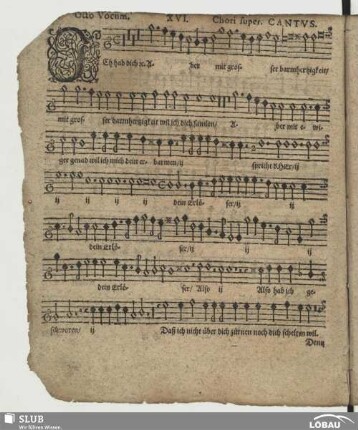 Octo Vocum. XVI. Chori super. CANTVS.
Ch hab dich je/A- ber mit gros- ser barmhertzigkeit/
mit gros- ser barmhertzigkeit wil ich dich samlen/ A- ber mit e- wi-
ger gnad wil ich mich dein er- barmen/ ij spricht d. Herr/ ij
ij ij ij ij dein Erlö- ser/ ij ij
dein Erlö- ser/ ij ij ij
dein Erlö- ser/ Also ij Also hab ich ge-
schworen/ ij Daß ich nicht über dich zürnen noch dich schelten wil.
Denn
SLUB
Wir führen Wissen.
LÖBAU